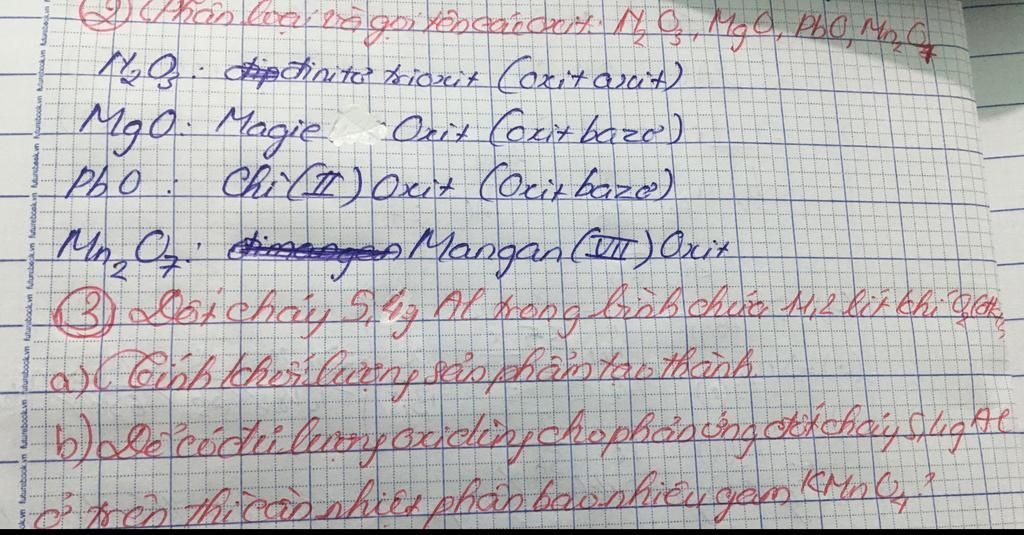 ② Phân loại và gọi tên các oxit: N₂O₃, MgO, PbO, Mn₂O₇
N₂O₃: đinitơ trioxit (oxit axit)
MgO: Magie Oxit (oxit bazơ)
PbO: Chì (II) Oxit (Oxit bazơ)
Mn₂O₇: dimangan Mangan (VII) Oxit
③ Đốt cháy 5,4g Al trong bình chứa 11,2 lít khí O₂ (đktc)
a) Tính khối lượng sản phẩm tạo thành.
b) Để có đủ lượng oxi dùng cho phản ứng đốt cháy 5,4g Al
ở trên thì cần nhiệt phân bao nhiêu gam KMnO₄?
futurebook.vn futurebook.vn futurebook.vn futurebook.vn